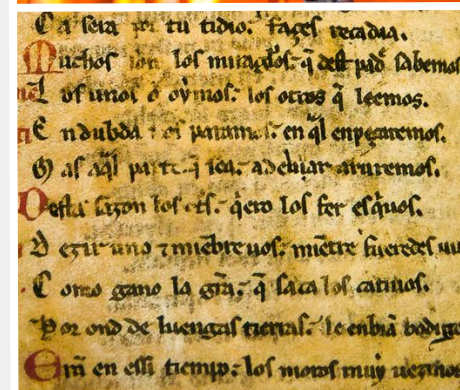 Ca sera por tu tidio: fages recadia.
Muchos son los miraglos: q̄ dest pad̄ sabemos
Los unos oymos: los otros q̄ leemos.
En dubda nos paramos: en q̄l enpeçaremos.
Mas aq̄l parte q̄ sea: adebuar auremos.
Desta sazon los ots̄: q̄ero los fer esq̄uos.
Dezir uno ⁊ miēbre uos: miētre fueredes
Como gano la grā: q̄ saca los catiuos.
Por ond de luengas tierras: le enbiā bodigos
Erā en essi tiempo: los moros muy uezinos